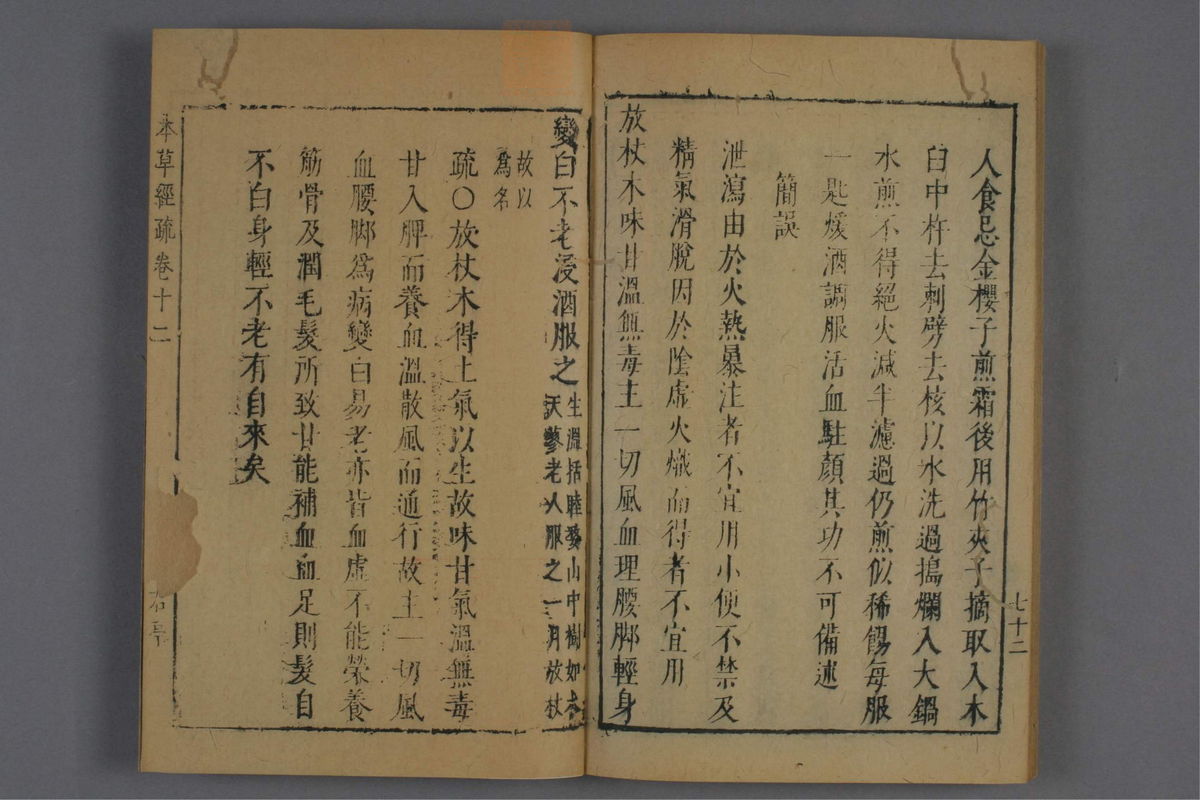 人食忌金櫻子煎霜後用竹夾子摘取入木
臼中杵去刺劈去核以水洗過搗爛入大鍋
水煎不得絕火減半濾過仍煎似稀餳每服
一匙煖酒調服活血駐顏其功不可備述
簡誤
泄瀉由於火熱暴注者不宜用小便不禁及
精氣滑脫因於陰虛火熾而得者不宜用
放杖木味甘溫無毒主一切風血理腰脚輕身
七十二
變白不老浸酒服之
生溫括睦婺山中樹如木
天蓼老人服之一月放杖
故以
爲名
疏〇放杖木得土氣以生故味甘氣溫無毒
甘入脾而養血溫散風而通行故主一切風
血腰脚爲病變白易老亦皆血虛不能榮養
筋骨及潤毛髮所致甘能補血血足則髮自
不白身輕不老有自來矣
本草經疏卷十二